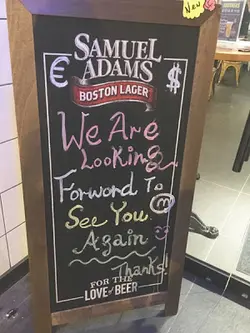 New
SAMUEL
ADAMS
€ $
BOSTON LAGER
We Are
Looking
Forward To
See You.
Again
Thanks!
FOR THE
LOVE of BEER